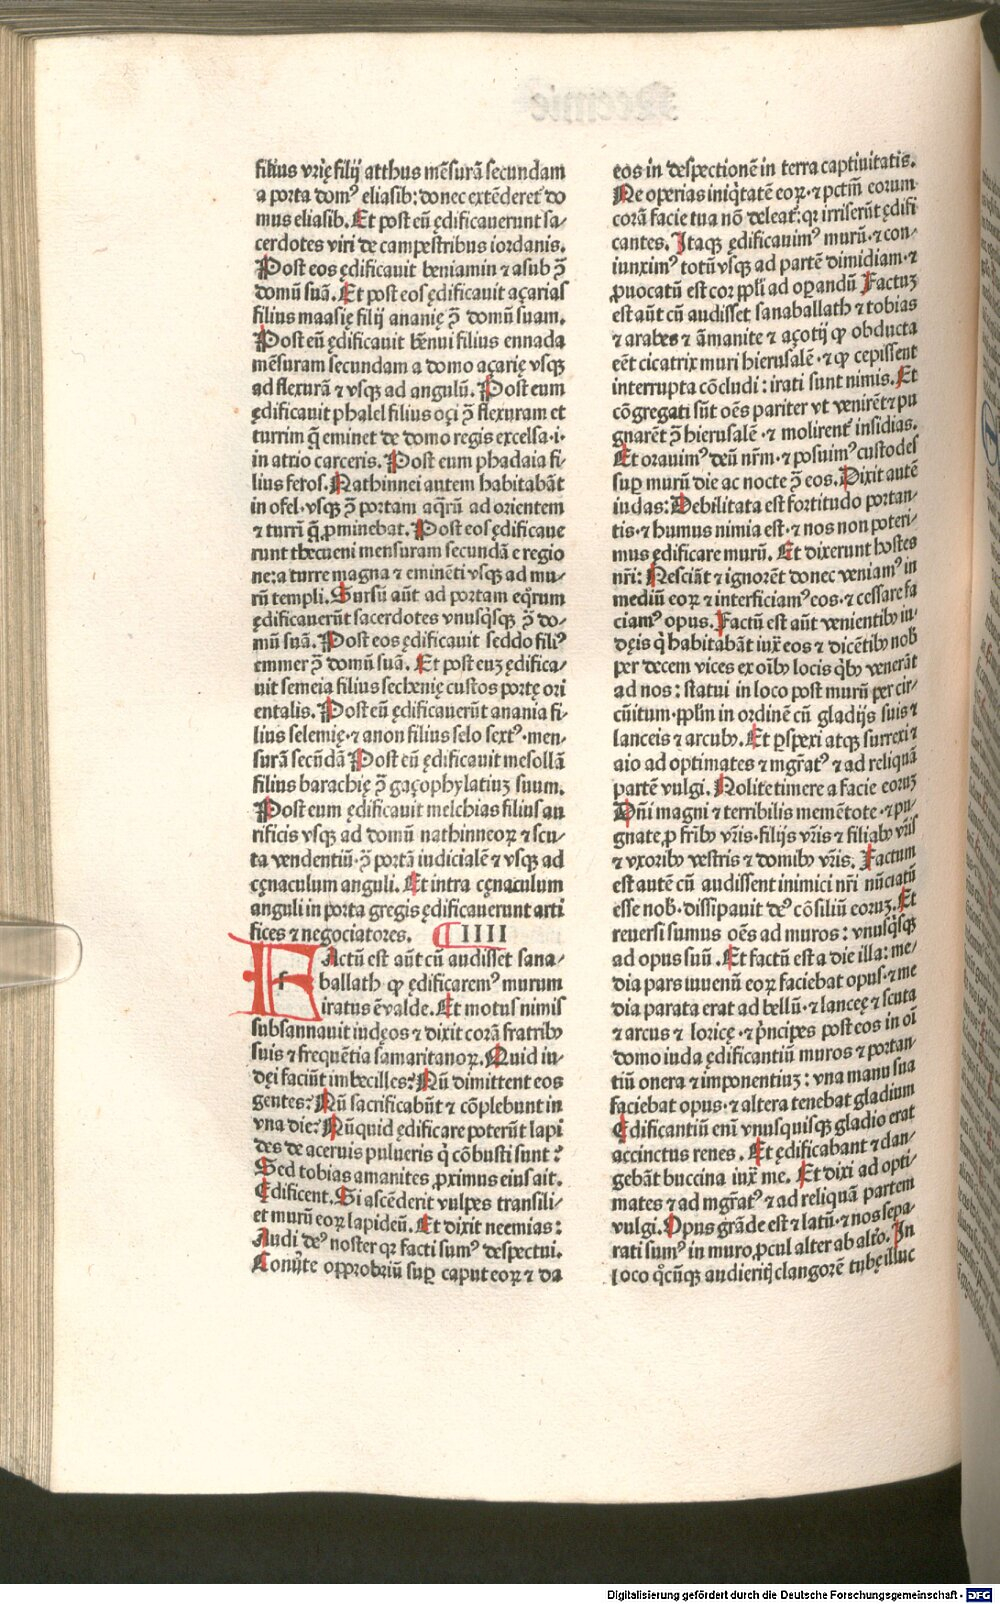 filius vrię filij atthus mēsurā secundam
a porta domꝰ eliasib: donec extēderet᷑ do
mus eliasib. Et post eū ędificauerunt sa/
cerdotes viri de campestribus iordanis.
Post eos ędificauit beniamin ⁊ asub ꝯ̄
domū suā. Et post eos ędificauit açarias
filius maasię filij ananię ꝯ̄ domū suam.
Post eū ędificauit bēnui filius ennada
mēsuram secundam a domo açarię vsqꝫ
ad flexurā ⁊ vsqꝫ ad angulū. Post eum
ędificauit phalel filius oçi ꝯ̄ flexuram et
turrim q̄ eminet de domo regis excelsa·i·
in atrio carceris. Post eum phadaia fi/
lius feros. Nathinnei autem habitabāt
in ofel·vsqꝫ ꝯ̄ portam aq̄rū ad orientem
⁊ turrī q̄ ꝓminebat. Post eos ędificaue
runt thecueni mensuram secundā e regio
ne: a turre magna ⁊ eminēti vsqꝫ ad mu/
rū templi. Sursū aūt ad portam eq̊rum
ędificauerūt sacerdotes vnusq̇sqꝫ ꝯ̄ do/
mū suā. Post eos ędificauit seddo filiꝰ
emmer ꝯ̄ domū suā. Et post euꝫ ędifica/
uit semeia filius sechenię custos portę ori
entalis. Post eū ędificauerūt anania fi/
lius selemię·⁊ anon filius selo sextꝰ·men/
surā secūdā Post eū ędificauit mesollā
filius barachię ꝯ̄ gaçophylatiuꝫ suum.
Post eum ędificauit melchias filius au
rificis vsqꝫ ad domū nathinneoꝝ ⁊ scu/
ta vendentiū·ꝯ̄ portā iudicialē ⁊ vsqꝫ ad
cęnaculum anguli. Et intra cęnaculum
anguli in porta gregis ędificauerunt arti
fices ⁊ negociatores. ¶ IIII
FActū est aūt cū audisset sana/
ballath ꝙ ędificaremꝰ murum
iratus ē valde. Et motus nimis
subsannauit iudęos ⁊ dixit corā fratribꝫ
suis ⁊ frequētia samaritanoꝝ. Quid iu/
dęi faciūt imbecilles? Nū dimittent eos
gentes? Nū sacrificabūt ⁊ cōplebunt in
vna die? Nūquid ędificare poterūt lapi
des de aceruis pulueris q̇ cōbusti sunt?
Sed tobias amanites ꝓximus eius ait.
Edificent. Si ascēderit vulpes transili/
et murū eoꝝ lapideū. Et dixit neemias:
Audi deꝰ noster qꝛ facti sumꝰ despectui.
Conūte opprobriū suꝑ caput eoꝝ ⁊ da
eos in despectionē in terra captiuitatis.
Ne operias iniq̇tatē eoꝝ·⁊ pctm̄ eorum
corā facie tua nō deleat᷑: qꝛ irriserūt ędifi
cantes. Itaqꝫ ędificauimꝰ murū·⁊ con/
iunximꝰ totū vsqꝫ ad partē dimidiam·⁊
ꝓuocatū est cor ppl̄i ad oꝑandū Factuꝫ
est aūt cū audisset sanaballath ⁊ tobias
⁊ arabes ⁊ āmanite ⁊ açotij ꝙ obducta
eēt cicatrix muri hierusalē·⁊ ꝙ cepissent
interrupta cōcludi: irati sunt nimis. Et
cōgregati sūt oēs pariter vt venirēt ⁊ pu
gnarēt ꝯ̄ hierusalē·⁊ molirent᷑ insidias.
Et orauimꝰ deū nr̄m·⁊ posuimꝰ custodes
suꝑ murū die ac nocte ꝯ̄ eos. Dixit autē
iudas: Debilitata est fortitudo portan/
tis·⁊ humus nimia est·⁊ nos non poteri/
mus ędificare murū. Et dixerunt hostes
nr̄i: Nesciāt ⁊ ignorēt donec veniamꝰ in
mediū eoꝝ ⁊ interficiamꝰ eos·⁊ cessare fa
ciamꝰ opus. Factū est aūt venientibꝫ iu/
dęis q̇ habitabāt iux̄ eos ⁊ dicētibꝫ nob̄
per decem vices ex oībꝫ locis q̇bꝫ venerāt
ad nos: statui in loco post murū per cir/
cūitum·ppl̄m in ordinē cū gladijs suis ⁊
lanceis ⁊ arcubꝫ. Et ꝑspexi atqꝫ surrexi ⁊
aio ad optimates ⁊ mg̃ratꝰ ⁊ ad reliquā
partē vulgi. Nolite timere a facie eoruꝫ
Dn̄i magni ⁊ terribilis memētote·⁊ pu/
gnate ꝓ fr̄ibꝫ vr̄is·filijs vr̄is ⁊ filiabꝫ vr̄is
⁊ vxoribꝫ vestris ⁊ domibꝫ vr̄is. Factum
est autē cū audissent inimici nr̄i nūciatū
esse nob̄·dissipauit deꝰ cōsiliū eoruꝫ. Et
reuersi sumus oēs ad muros: vnusq̇sqꝫ
ad opus suū. Et factū est a die illa: me/
dia pars iuuenū eoꝝ faciebat opus·⁊ me
dia parata erat ad bellū·⁊ lanceę ⁊ scuta
⁊ arcus ⁊ loricę·⁊ pͥncipes post eos in oī
domo iuda ędificantiū muros ⁊ portan/
tiū onera ⁊ imponentiuꝫ: vna manu sua
faciebat opus·⁊ altera tenebat gladium
Edificantiū enī vnusquisqꝫ gladio erat
accinctus renes. Et ędificabant ⁊ clan/
gebāt buccina iux̄ me. Et dixi ad opti/
mates ⁊ ad mg̃ratꝰ ⁊ ad reliquā partem
vulgi. Opus grāde est ⁊ latū·⁊ nos sepa/
rati sumꝰ in muro ꝓcul alter ab alt̄o. In
loco q̊cūqꝫ audieritis clangorē tubę illuc
Digitalisierung gefördert durch die Deutsche Forschungsgemeinschaft - DFG